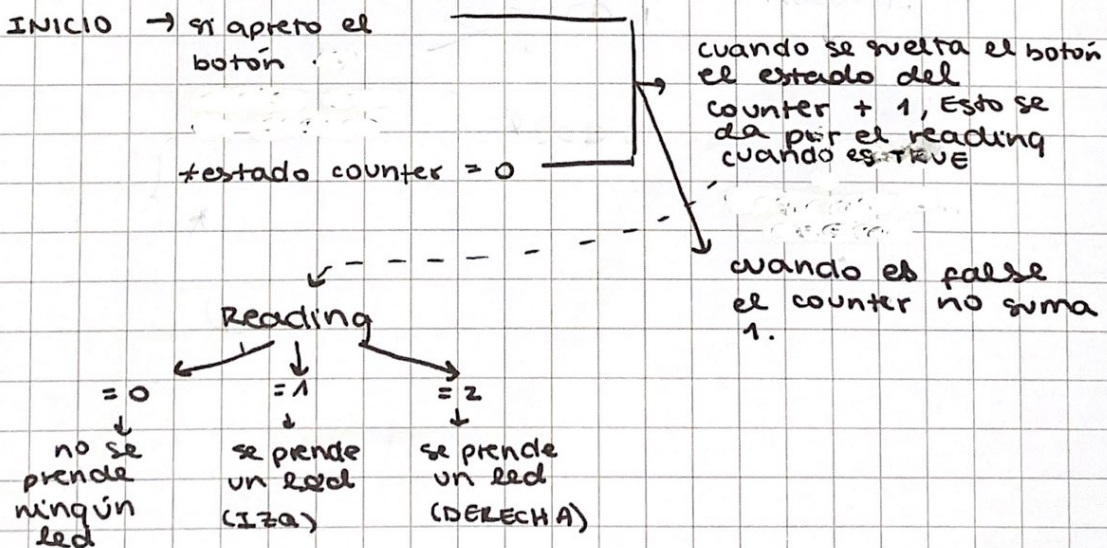 INICIO → si apreto el
botón
+estado counter = 0
cuando se suelta el botón
el estado del
counter + 1, Esto se
da por el reading
cuando es TRUE
cuando es false
el counter no suma
1.
Reading
= 0
no se
prende
ningún
led
= 1
se prende
un led
(IZQ)
= 2
se prende
un led
(DERECHA)